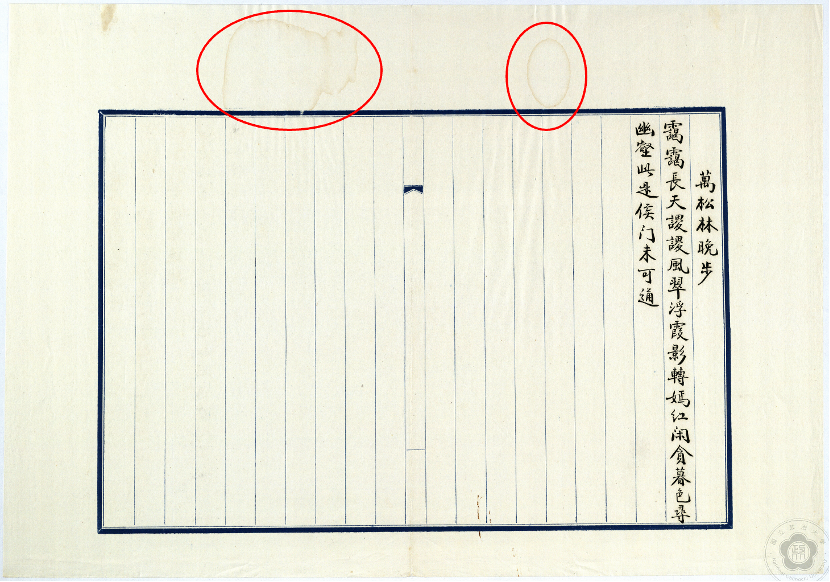 萬松林晚步
靄靄長天謖謖風翠浮霞影轉嫣紅閑貪暮色尋
幽壑此是侯门未可通